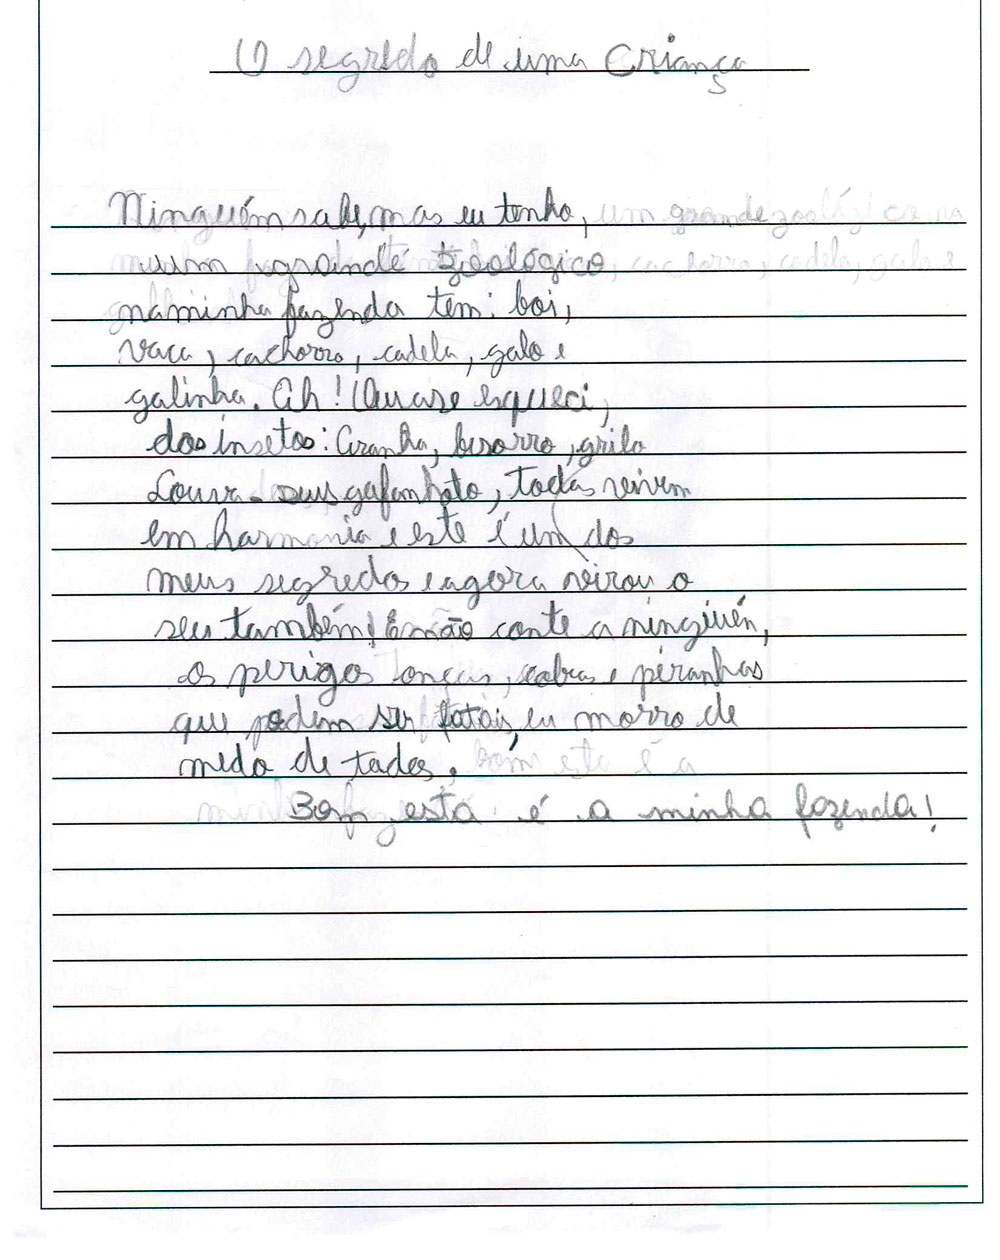 O segredo de uma Criança
Ninguém sabe, mas eu tenho,
um grande zoológico
na minha fazenda tem: boi,
vaca, cachorro, cadela, galo e
galinha. Ah! Quase esqueci,
dos insetos: Aranha, besorro, grilo
Louva-deus gafanhoto, todas vivem
em harmonia e este é um dos
meus segredos e agora virou o
seu também! E não conte a ninguém,
os perigos onças, cobras e piranhas
que podem ser fatais, eu morro de
medo de todos.
Bom esta é a minha fazenda!